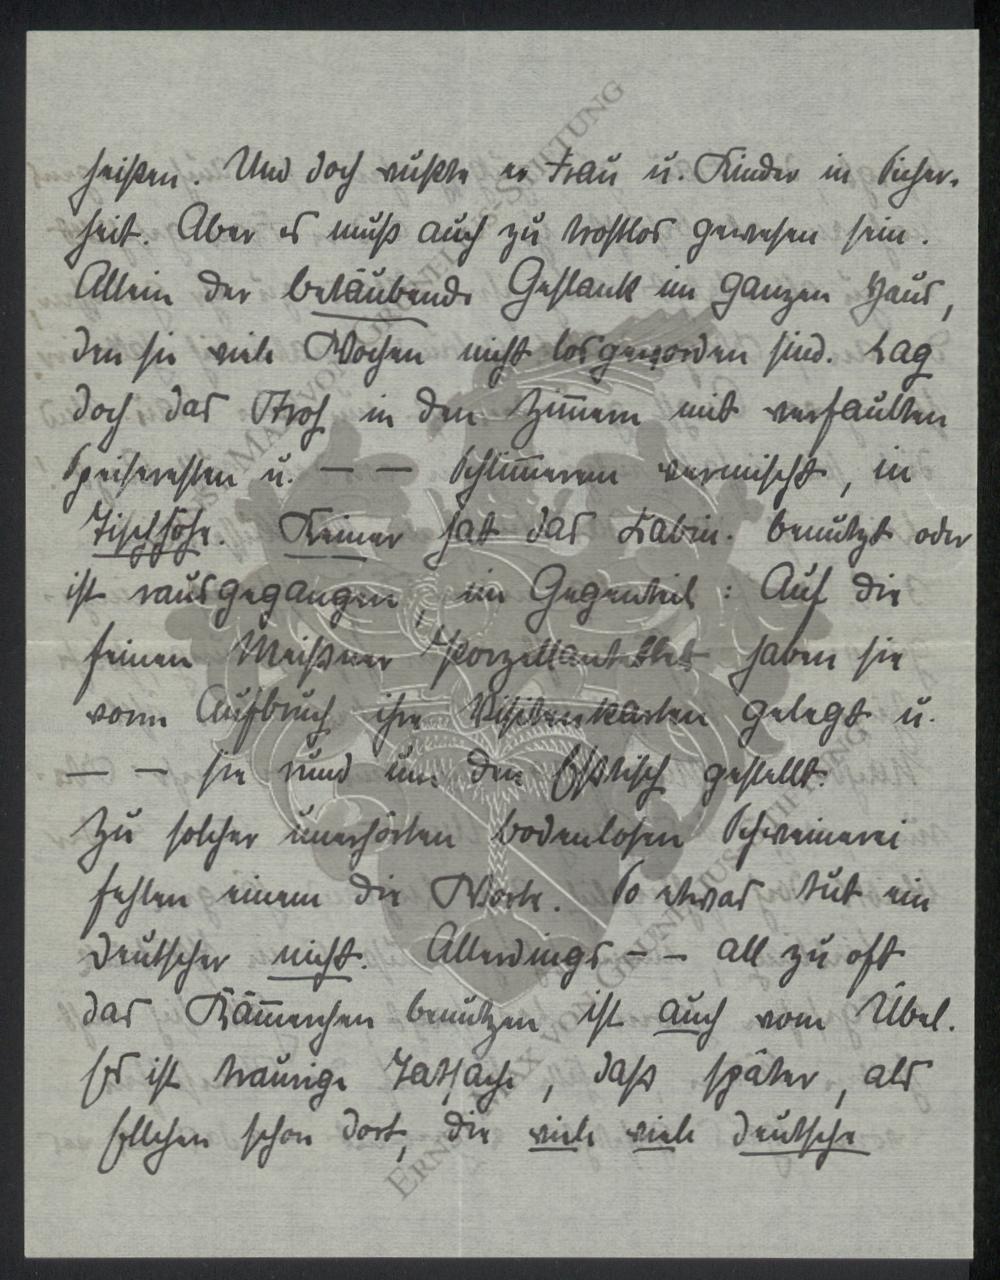 heißen. Und doch wußte er Frau u. Kinder in Sicher-
heit. Aber es muß auch zu trostlos gewesen sein.
Allein der betäubende Gestank im ganzen Haus,
den sie viele Wochen nicht losgeworden sind. Lag
doch das Stroh in den Zimmern mit verfaulten
Speiseresten u. — — Schlimmerem vermischt, in
Tischhöhe. Keiner hat das Kabin. benützt oder
ist rausgegangen, im Gegenteil: Auf die
feinen Meißner Porzellanteller haben sie
vorm Aufbruch ihre Visitenkarten gelegt u.
— — sie rund um den Eßtisch gestellt.
Zu solcher unerhörten bodenlosen Schweinerei
fehlen einem die Worte. So etwas tut ein
Deutscher nicht. Allerdings — — all zu oft
das Kämmerchen benützen ist auch vom Übel.
Es ist traurige Tatsache, daß später, als
Ellchen schon dort, die viele viele deutsche
ERNST-MAX VON GRUNELIUS-STIFTUNG
ERNST MAX VON GRUNELIUS-STIFTUNG